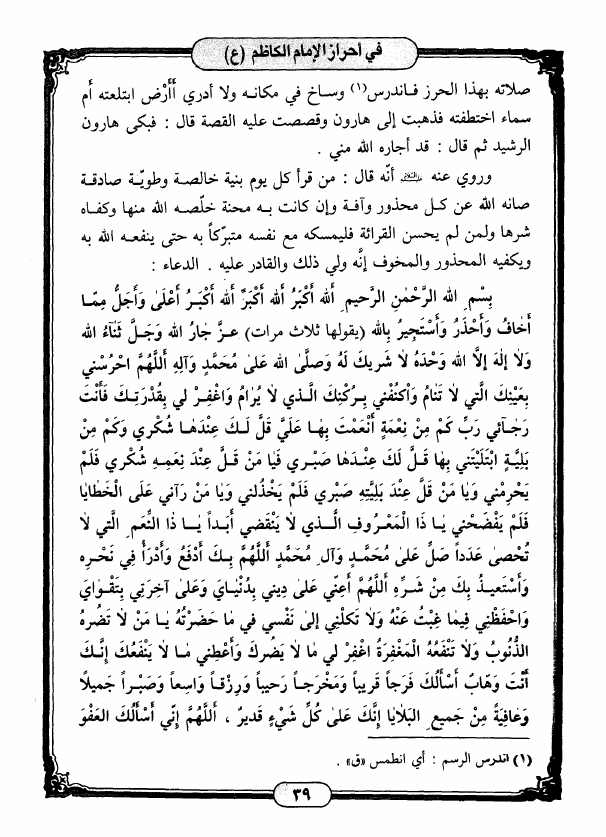 في أحراز الإمام الكاظم (ع)
صلاته بهذا الحرز فاندرس(١) وساخ في مكانه ولا أدري أأَرْض ابتلعته أم
سماء اختطفته فذهبت إلى هارون وقصصت عليه القصة قال : فبكى هارون
الرشيد ثم قال : قد أجاره الله مني .
وروي عنه عليه السلام أنّه قال : من قرأ كل يوم بنية خالصة وطويّة صادقة
صانه الله عن كل محذور وآفة وإن كانت به محنة خلّصه الله منها وكفاه
شرها ولمن لم يحسن القرائة فليمسكه مع نفسه متبرّكاً به حتى ينفعه الله به
ويكفيه المحذور والمخوف إنَّه ولي ذلك والقادر عليه . الدعاء :
بِسْمِ اللهِ الرَّحْمٰنِ الرَّحيمِ اللهُ أَكْبَرُ اللهُ أَكْبَرُ اللهُ أَكْبَرُ أَعْلىٰ وَأَجَلُّ مِمّا
أَخافُ وَأَحْذَرُ وَأَسْتَجيرُ بِاللهِ (يقولها ثلاث مرات) عزَّ جارُ اللهِ وَجَلَّ ثَنٰاءُ اللهِ
وَلاٰ إِلٰهَ إِلاَّ اللهُ وَحْدَهُ لاٰ شَريكَ لَهُ وَصَلَّى اللهُ عَلىٰ مُحَمَّدٍ وَآلِهِ أَللّٰهُمَّ احْرُسْني
بِعَيْنِكَ الَّتي لاٰ تَنٰامُ وَاكْنُفْني بِرُكْنِكَ الَّذي لاٰ يُرٰامُ وَاغْفِرْ لي بِقُدْرَتِكَ فَأَنْتَ
رَجٰائي رَبِّ كَمْ مِنْ نِعْمَةٍ أَنْعَمْتَ بِهٰا عَلَيَّ قَلَّ لَكَ عِنْدَهٰا شُكْري وَكَمْ مِنْ
بَلِيَّةٍ ابْتَلَيْتَني بِهٰا قَلَّ لَكَ عِنْدَهٰا صَبْري فَيٰا مَنْ قَلَّ عِنْدَ نِعَمِهِ شُكْري فَلَمْ
يَحْرِمْني وَيٰا مَنْ قَلَّ عِنْدَ بَلِيَّتِهِ صَبْري فَلَمْ يَخْذُلْني وَيٰا مَنْ رَآني عَلَى الْخَطٰايٰا
فَلَمْ يَفْضَحْني يٰا ذَا الْمَعْرُوفِ الَّذي لاٰ يَنْقَضي أَبَداً يٰا ذَا النِّعَمِ الَّتي لاٰ
تُحْصىٰ عَدَداً صَلِّ عَلىٰ مُحَمَّدٍ وَآلِ مُحَمَّدٍ أَللّٰهُمَّ بِكَ أَدْفَعُ وَأَدْرَأُ في نَحْرِهِ
وَأَسْتَعيذُ بِكَ مِنْ شَرِّهِ أَللّٰهُمَّ أَعِنّي عَلىٰ ديني بِدُنْيٰايَ وَعَلىٰ آخِرَتي بِتَقْوٰايَ
وَاحْفَظْني فيمٰا غِبْتُ عَنْهُ وَلاٰ تَكِلْني إِلىٰ نَفْسي في مٰا حَضَرْتُهُ يٰا مَنْ لاٰ تَضُرُّهُ
الذُّنُوبُ وَلاٰ تَنْفَعُهُ الْمَغْفِرَةُ اغْفِرْ لي مٰا لاٰ يَضُرُكَ وَأَعْطِني مٰا لاٰ يَنْفَعُكَ إِنَّكَ
أَنْتَ وَهّابٌ أَسْأَلُكَ فَرَجاً قَريباً وَمَخْرَجاً رَحيباً وَرِزْقاً وٰاسِعاً وَصَبْراً جَميلاً
وَعٰافِيَةً مِنْ جَميعِ الْبَلاٰيٰا إِنَّكَ عَلىٰ كُلِّ شَيْءٍ قَديرٌ ، أَللّٰهُمَّ إِنّي أَسْأَلُكَ الْعَفْوَ
(١) اندرس الرسم : أي انطمس «ق» .
٣٩